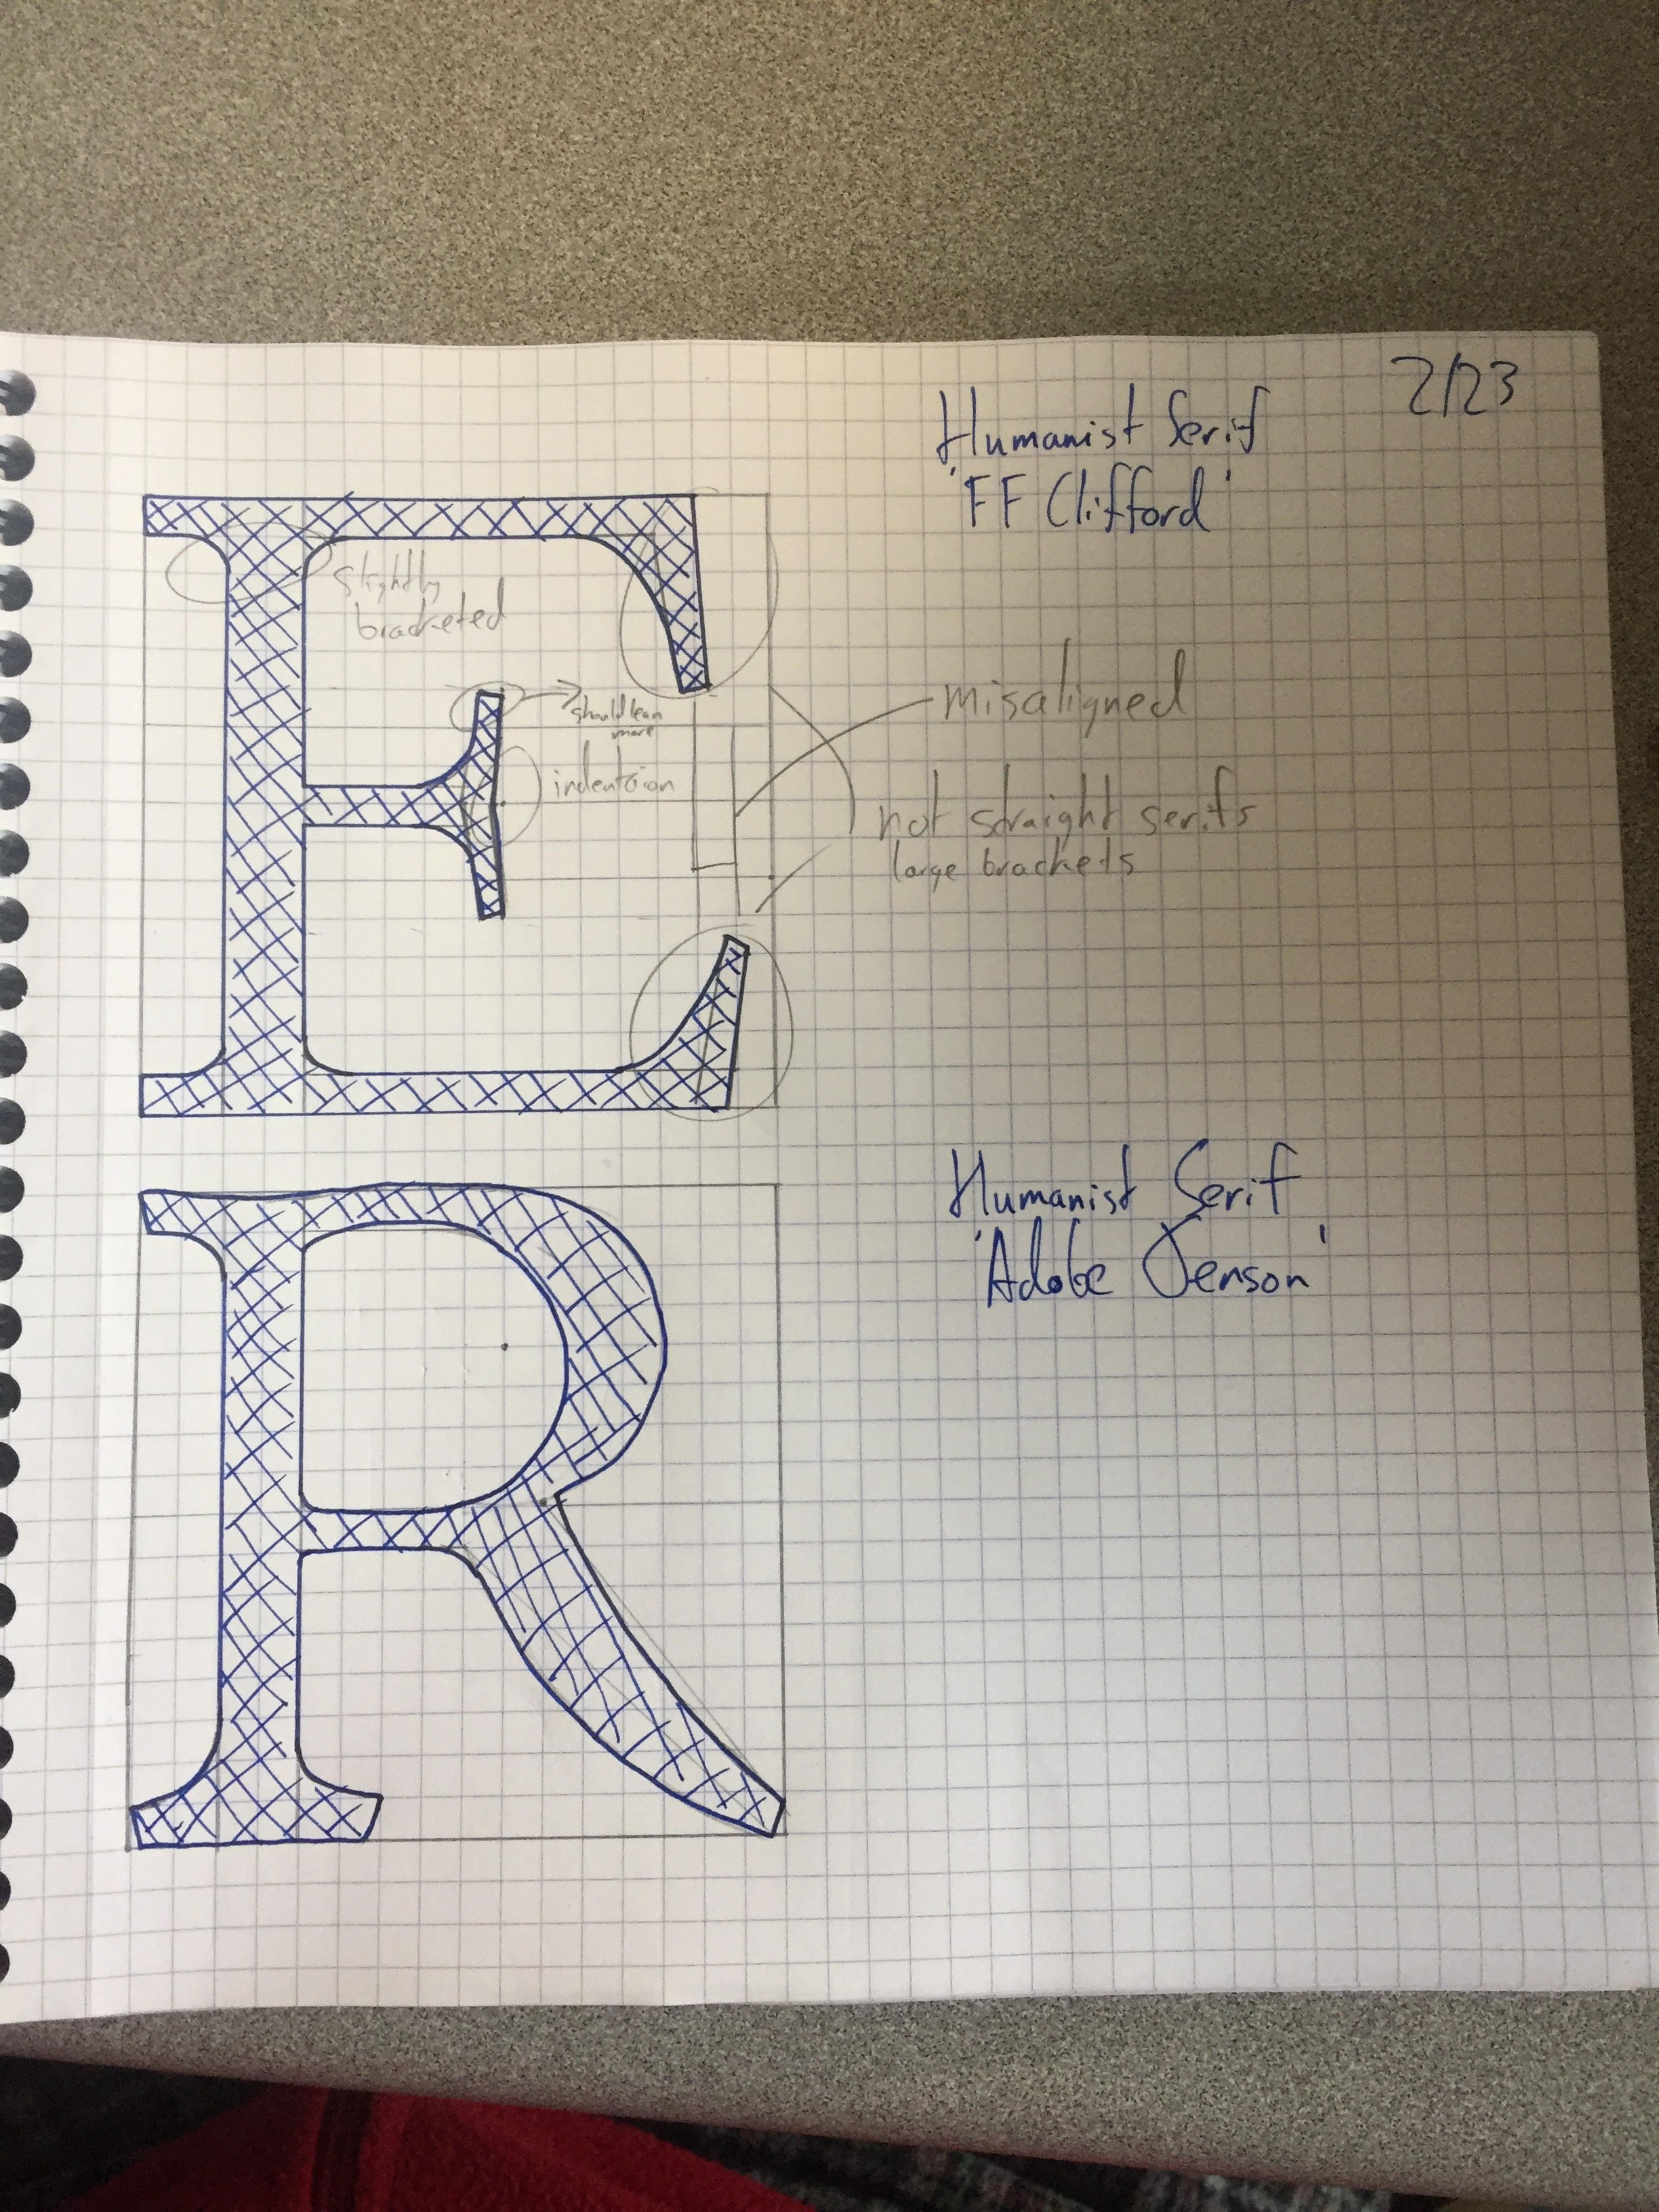 2/23
Humanist Serif
'FF Clifford'
slightly
bracketed
should lean
more
indentaion
misaligned
not straight serifs
large brackets
Humanist Serif
'Adobe Jenson'
E
R